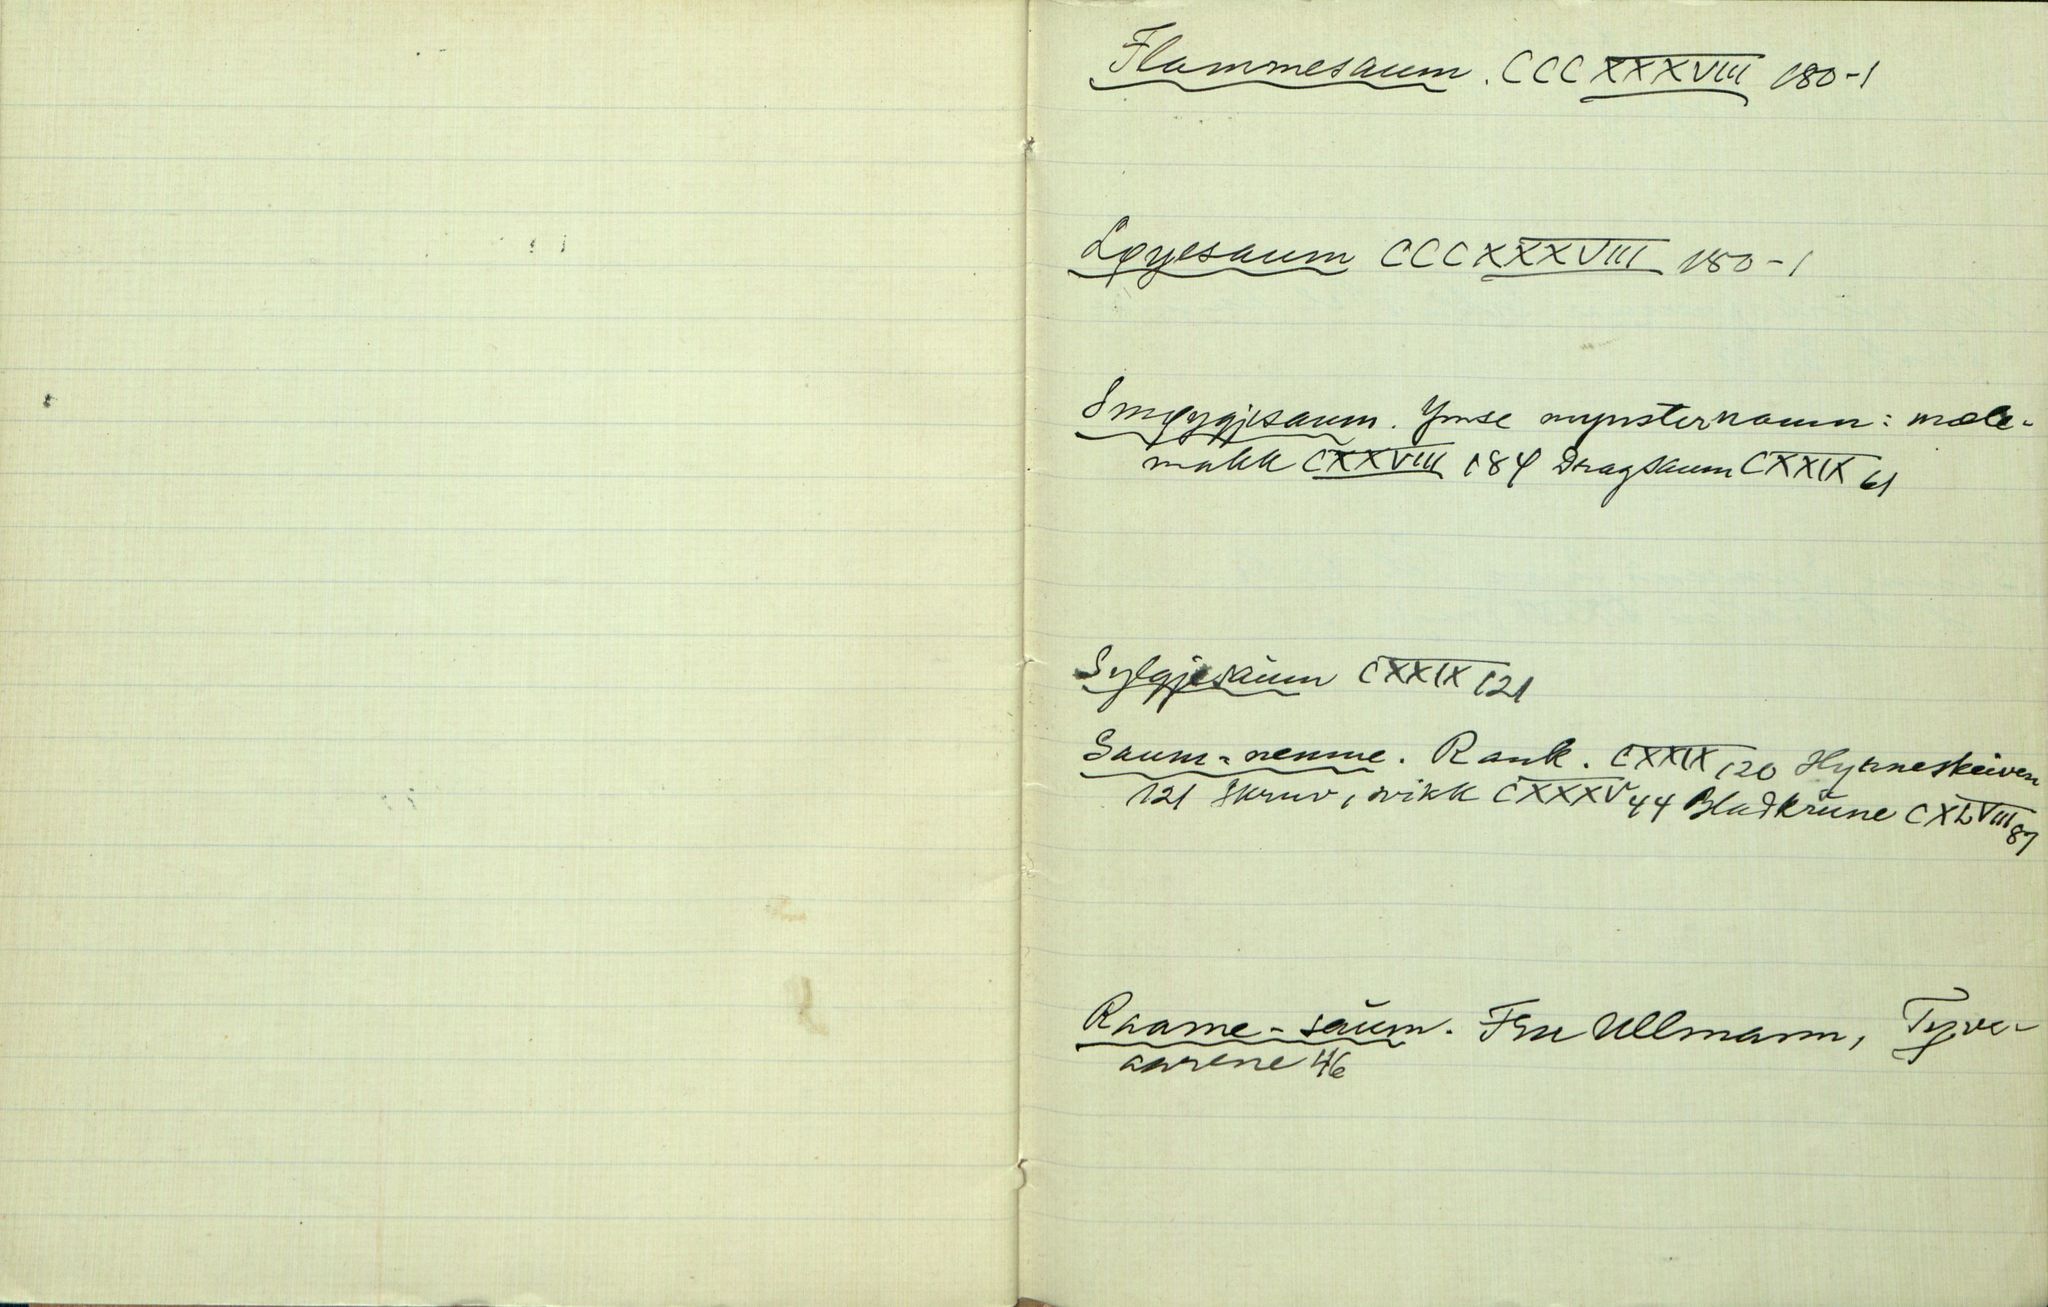 Flammesaum. CCCXXXVIII 180-1
Løyesaum CCCXXXVIII 180-1
Smøygjesaum. Ymse mynsternamn: mole-
makk CXXVIII 184 Dragsaum CXXIX 61
Sylgjesaum CXXIX 121
Saum-nemne. Rank. CXXIX 120 Hynneskeiven
121 Skruv, svikk CXXXV 44 Bladkrune CXLVIII 87
Raame-saum. Fru Ullmann, Tyve-
aarene 46